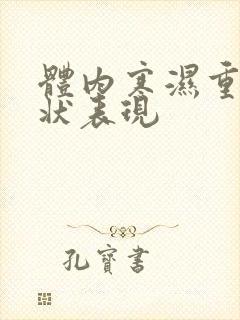 體內寒濕重
狀表現
孔寶書